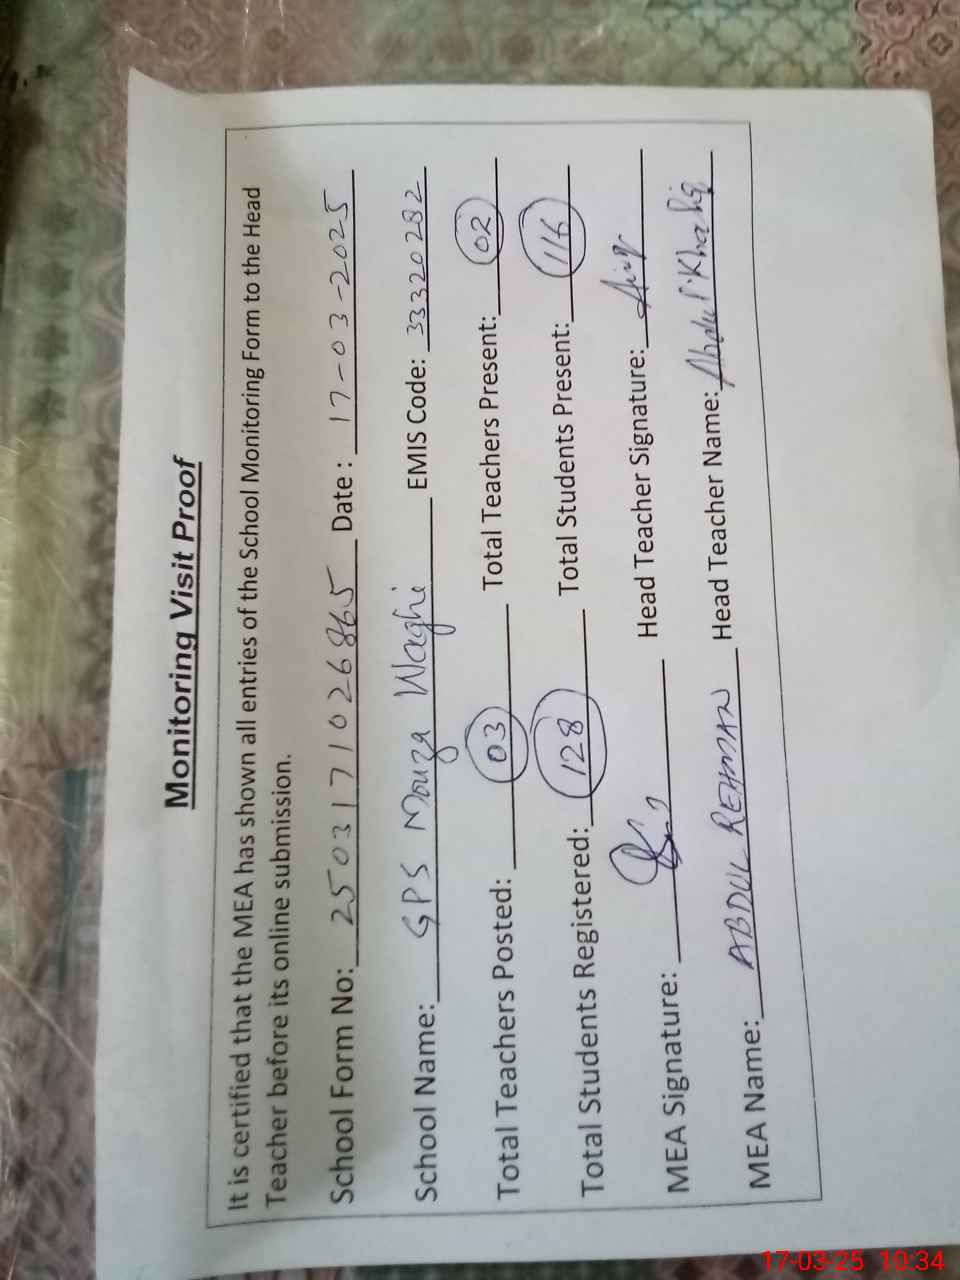 Monitoring Visit Proof
It is certified that the MEA has shown all entries of the School Monitoring Form to the Head
Teacher before its online submission.
School Form No: 2503171026865 Date : 17-03-2025
School Name: GPS Mouza Waghi EMIS Code: 33320282
Total Teachers Posted: 03 Total Teachers Present: 02
Total Students Registered: 128 Total Students Present: 116
MEA Signature: Head Teacher Signature:
MEA Name: ABDUL REHMAN Head Teacher Name: Abdul Khaliq
17-03-25 10:34